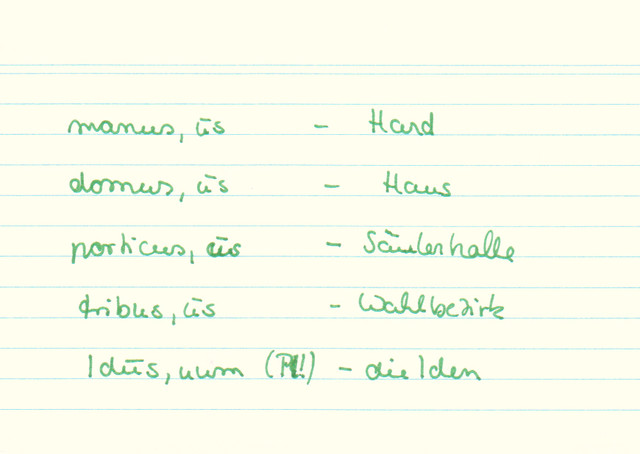 manus, ūs - Hand
domus, ūs - Haus
porticus, ūs - Säulenhalle
tribus, ūs - Wahlbezirk
Idūs, uum (Pl!) - die Iden